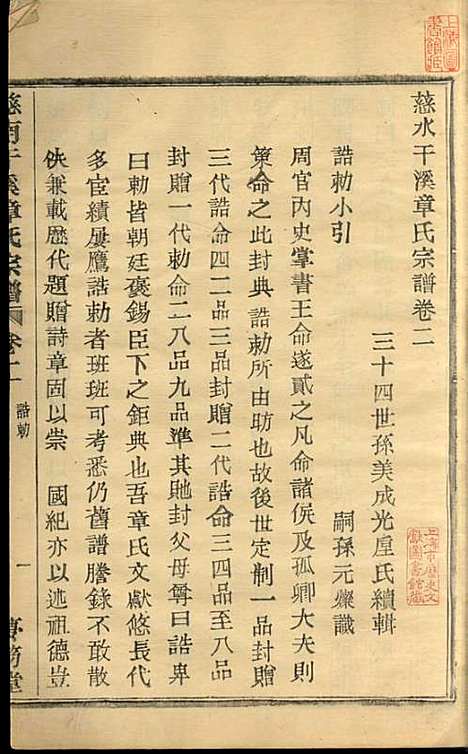 慈水干溪章氏宗譜卷二
三十四世孫美成光垕氏續輯
誥勅小引
嗣孫元燦識
周官內史掌書王命遂貳之凡命諸侯及孤卿大夫則
策命之此封典誥勅所由昉也故後世定制一品封贈
三代誥命四二品三品封贈二代誥命三四品至八品
封贈一代勅命二八品九品準其貤封父母尊曰誥卑
曰勅皆朝廷褒錫臣下之鉅典也吾章氏文獻悠長代
多宦績屢膺誥勅者班班可考悉仍舊譜謄錄不敢散
佚兼載歷代題贈詩章固以崇 國紀亦以述祖德豈
慈南干溪章氏宗譜 卷二 誥勅 一
上海市歷史文
獻圖書館藏